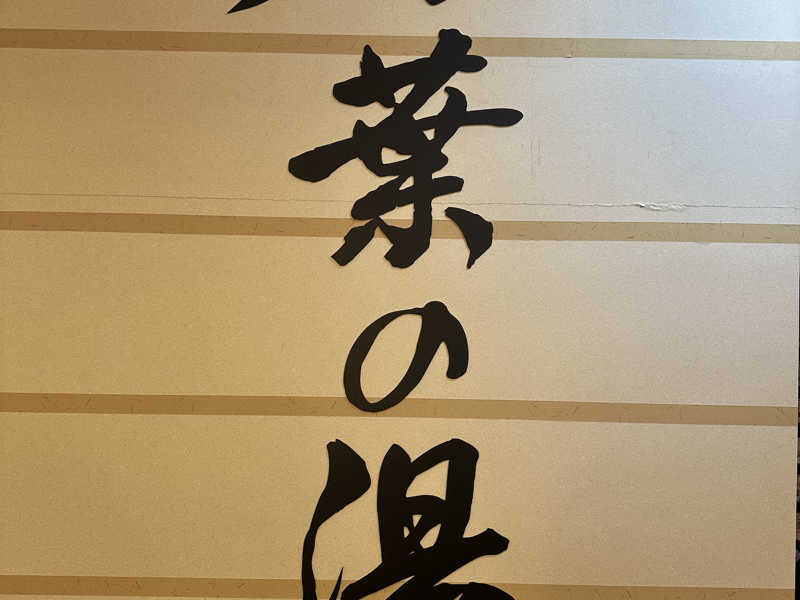 葉の湯